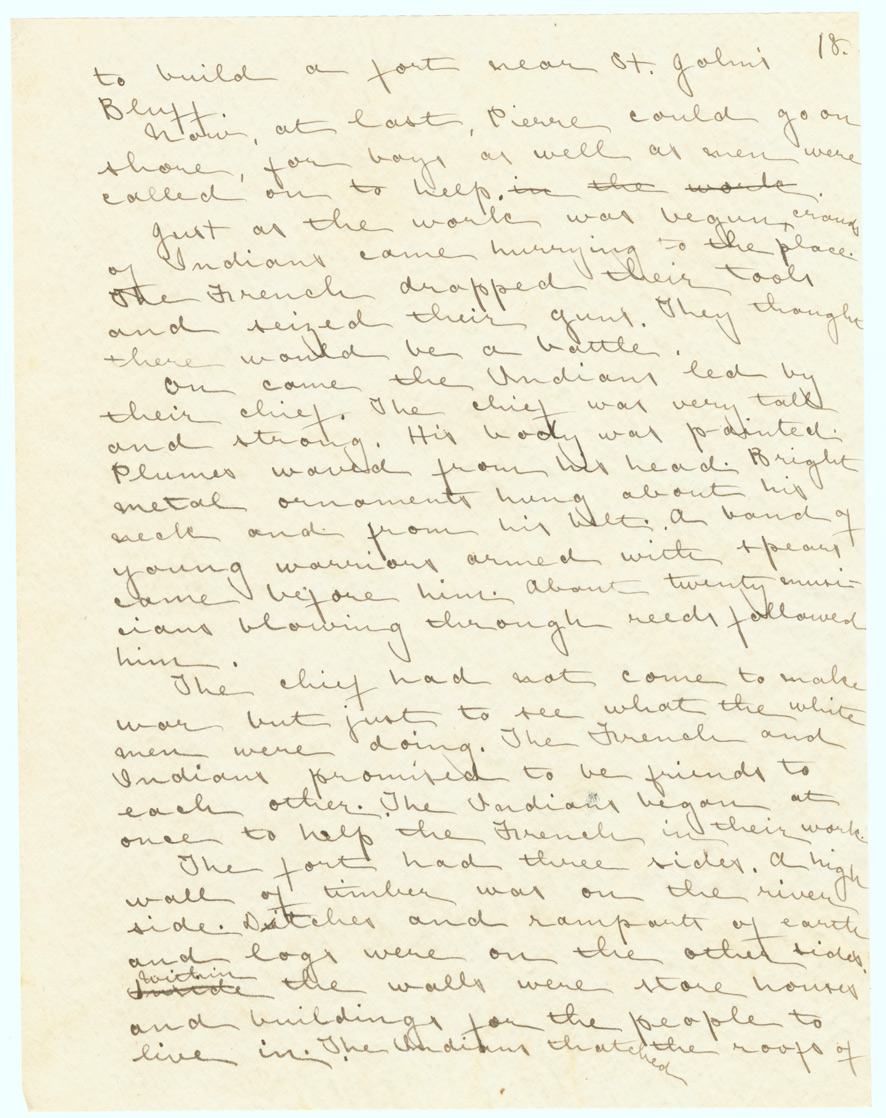 18.
to build a fort near St. John's
Bluff.
Now, at last, Pierre could go on
shore, for boys as well as men were
called on to help. in the work.
Just as the work was begun, crowds
of Indians came hurrying to the place.
The French dropped their tools
and seized their guns. They thought
there would be a battle.
On came the Indians led by
their chief. The chief was very tall
and strong. His body was painted.
Plumes waved from his head. Bright
metal ornaments hung about his
neck and from his belt. A band of
young warriors armed with spears
came before him. About twenty musi-
cians blowing through reeds followed
him.
The chief had not come to make
war but just to see what the white
men were doing. The French and
Indians promised to be friends to
each other. The Indians began at
once to help the French in their work.
The fort had three sides. A high
wall of timber was on the river
side. Ditches and ramparts of earth
and logs were on the other sides.
Within
Inside the walls were store houses
and buildings for the people to
live in. The Indians thatched the roofs of